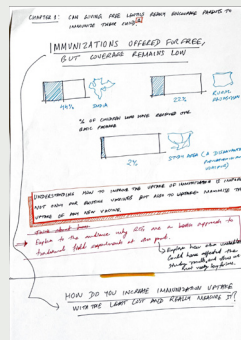 CHAPTER 1: CAN GIVING FREE LENTILS REALLY ENCOURAGE PARENTS TO
IMMUNIZE THEIR CHILD?
IMMUNIZATIONS OFFERED FOR FREE,
BUT COVERAGE REMAINS LOW
44%
INDIA
22%
RURAL
RAJASTHAN
% OF CHILDREN WHO HAVE RECEIVED THE
BASIC PACKAGE
2%
STUDY AREA (A DISADVANTAGED
UNDERSTANDING HOW TO IMPROVE THE UPTAKE OF IMMUNIZATION IS IMPORTANT
NOT ONLY FOR EXISTING VACCINES BUT ALSO TO UPTAKE MAXIMIZE THE
UPTAKE OF ANY NEW VACCINE.
Explain to the audience why RCTs are a better approach to
traditional field experiments at this point.
Explain how other variables
could have affected the
study results, and
but very
HOW DO YOU INCREASE IMMUNIZATION UPTAKE
WITH THE LEAST COST AND REALLY MEASURE IT?